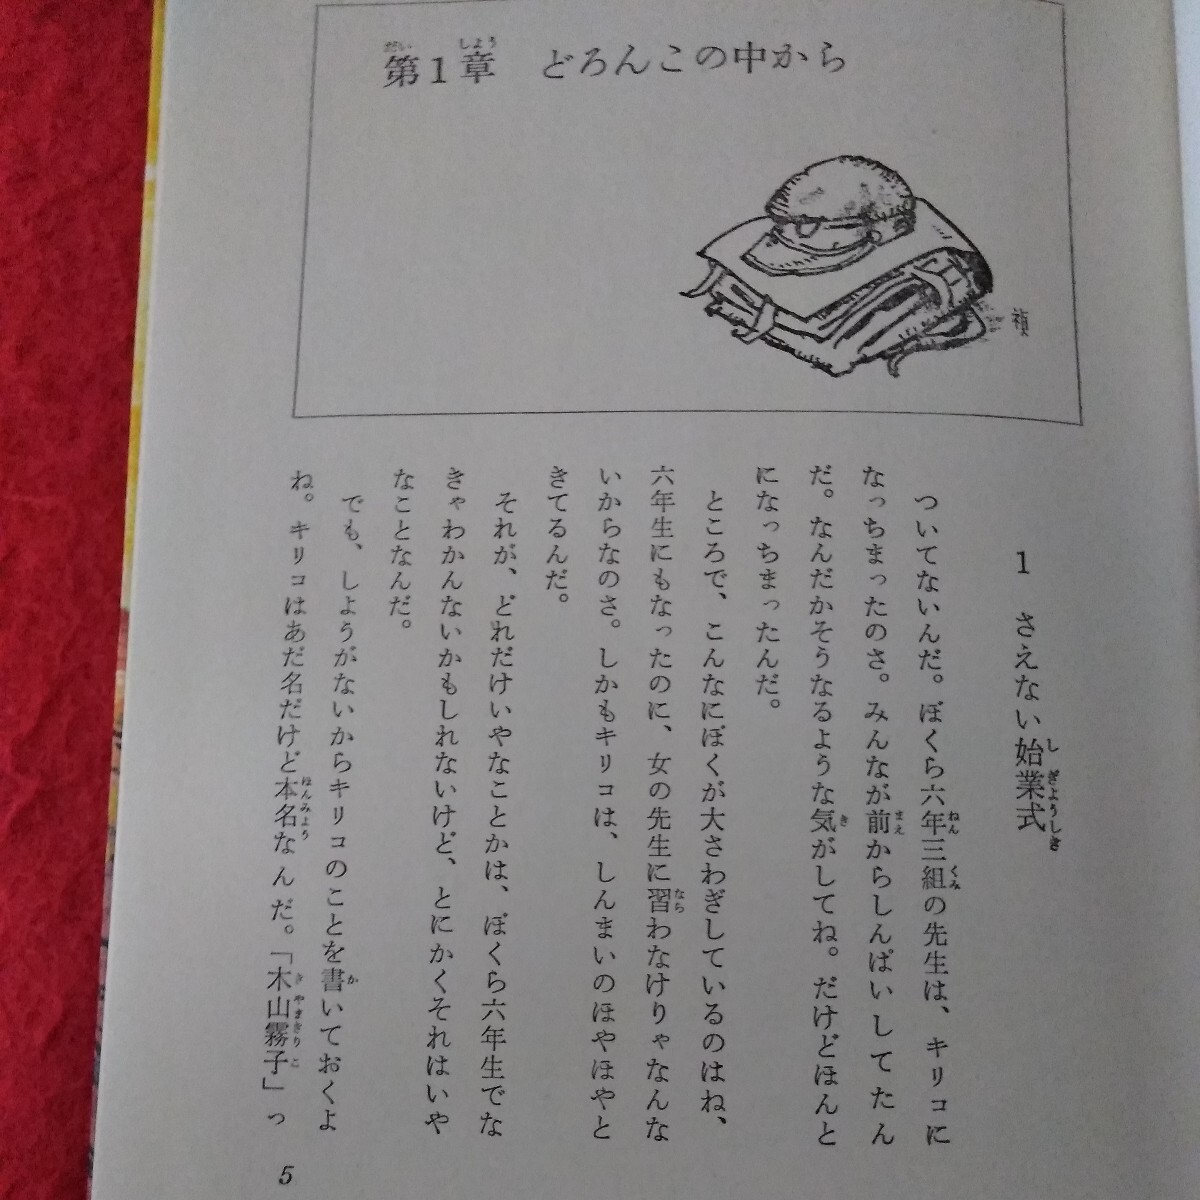 第1章 どろんこの中から
禎
1 さえない始業式
ついてないんだ。ぼくら六年三組の先生は、キリコに
なっちまったのさ。みんなが前からしんぱいしてたん
だ。なんだかそうなるような気がしてね。だけどほんと
になっちまったんだ。
ところで、こんなにぼくが大さわぎしているのはね、
六年生にもなったのに、女の先生に習わなけりゃなんな
いからなのさ。しかもキリコは、しんまいのほやほやと
きてるんだ。
それが、どれだけいやなことかは、ぼくら六年生でな
きゃわかんないかもしれないけど、とにかくそれはいや
なことなんだ。
でも、しようがないからキリコのことを書いておくよ
ね。キリコはあだ名だけど本名なんだ。「木山霧子」っ
5